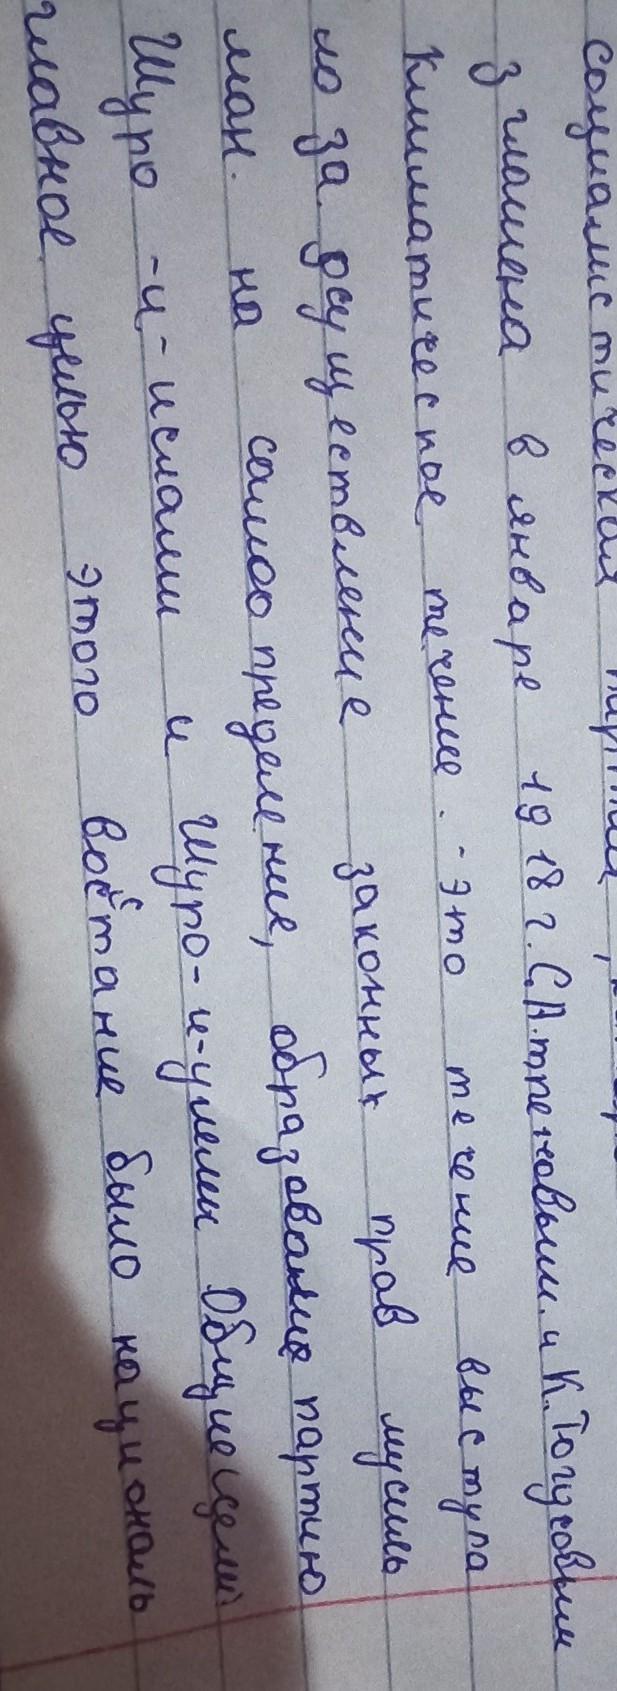 социалистическая партия,
зглашена в январе 1918г. С.А. и К. Тогусовым
Климатическое течение. - это течение выступа
ло за осуществление законных прав мусуль
ман. на самоопределение, образование партию
Шуро -и- ислами и Шуро-и-улеми Общие (цели
главное целью этого восстание было националь